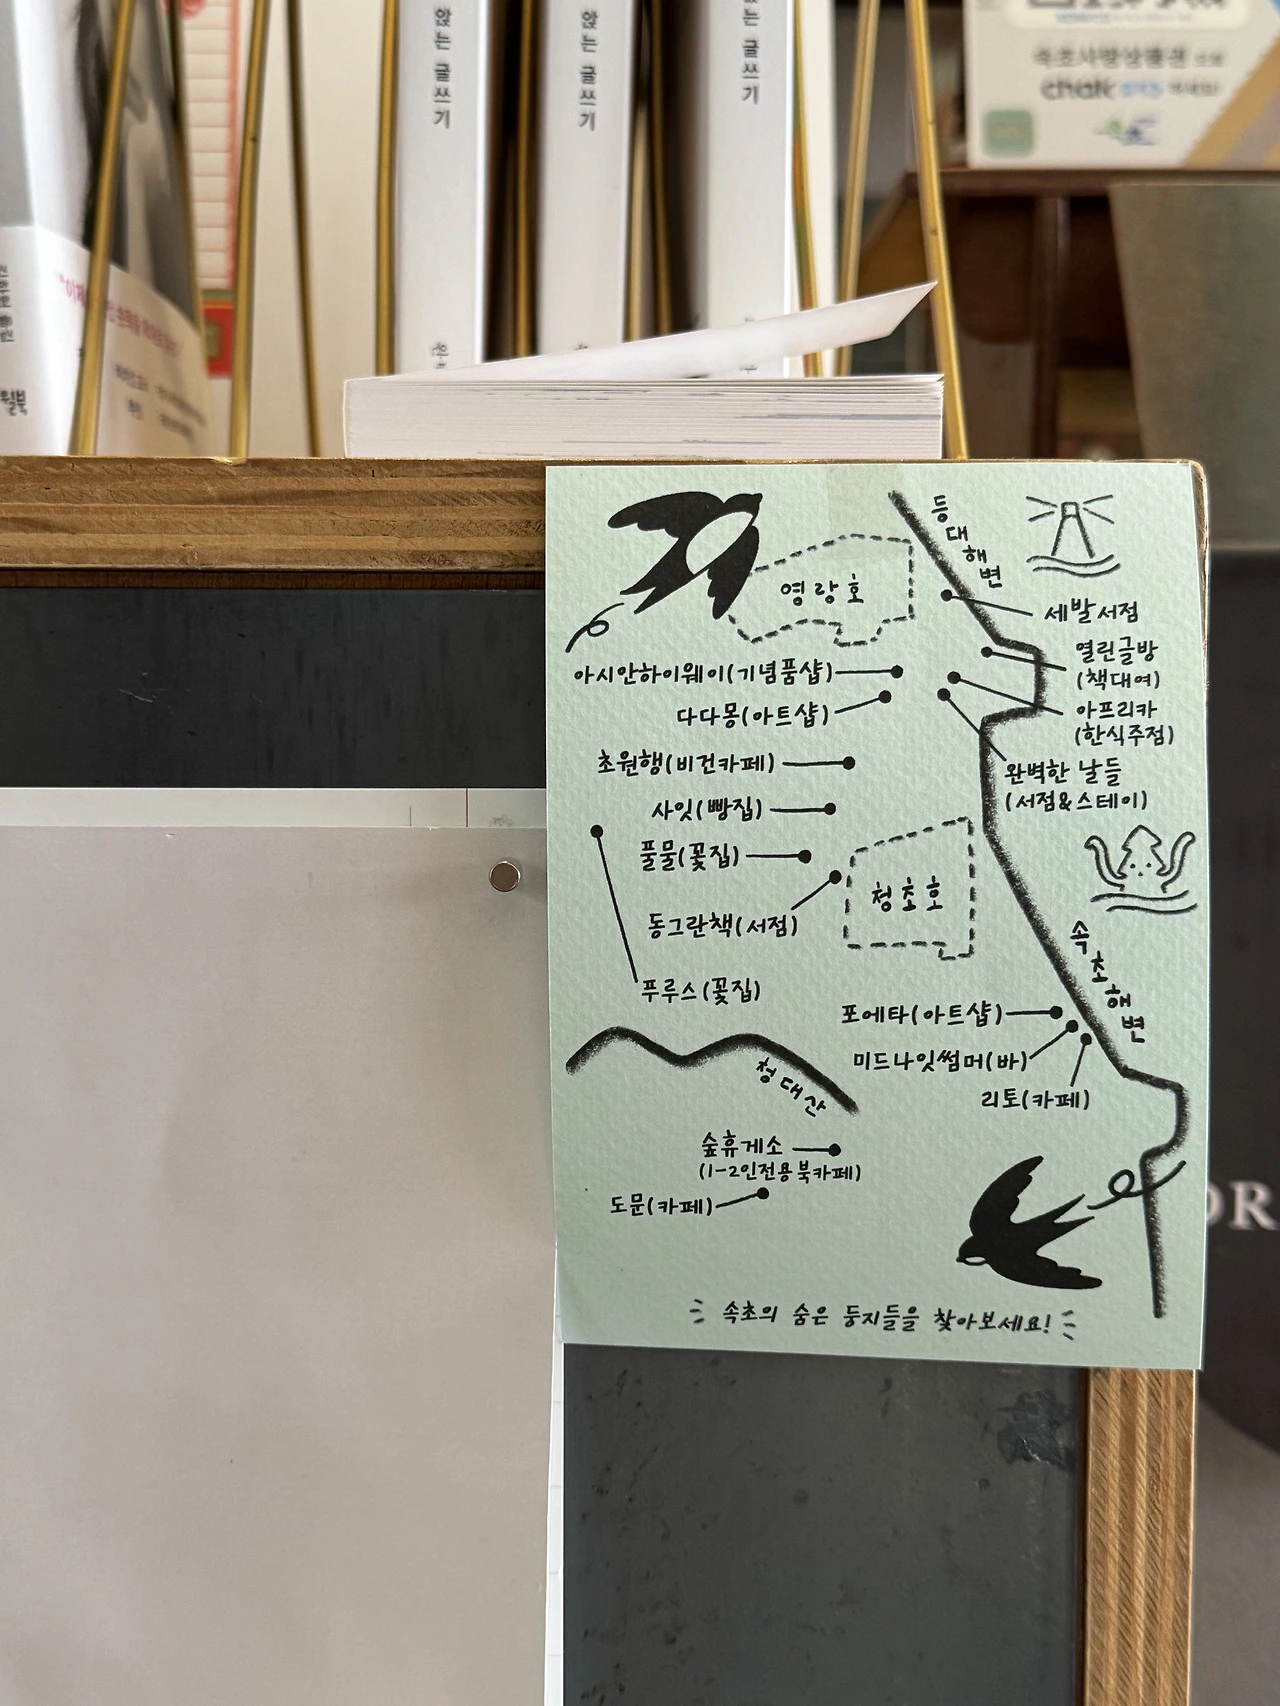 앉는 글쓰기
앉는 글쓰기
는 글쓰기
속초사랑상품권
chak
등대해변
영랑호
세발서점
열린글방
(책대여)
아시안하이웨이(기념품샵)
다다몽(아트샵)
아프리카
(한식주점)
초원행(비건카페)
완벽한 날들
(서점&스테이)
사잇(빵집)
풀물(꽃집)
청초호
동그란책(서점)
속초해변
푸루스(꽃집)
포에타(아트샵)
미드나잇썸머(바)
리토(카페)
청대산
숲휴게소
(1-2인전용북카페)
도문(카페)
속초의 숨은 둥지들을 찾아보세요!